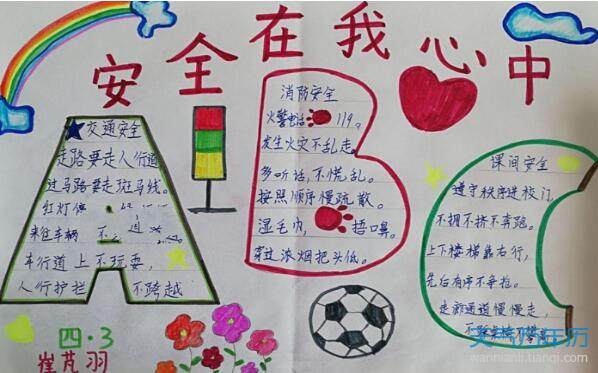 安全在我心中
交通安全
走路要走人行道
过马路要走斑马线。
红灯停
来往车辆 不
车行道上不玩耍，
人行护拦 不跨越
消防安全
火警电话 119。
发生火灾不乱走。
多听话，不慌乱。
按照顺序慢疏散。
湿毛巾， 捂口鼻。
穿过浓烟把头低。
课间安全
遵守秩序进校门，
不拥不挤不奔跑。
上下楼梯靠右行，
先后有序不争抢。
走廊通道慢慢走，
四·3
崔芃羽
天气万年历
wannianli.tianqi.com